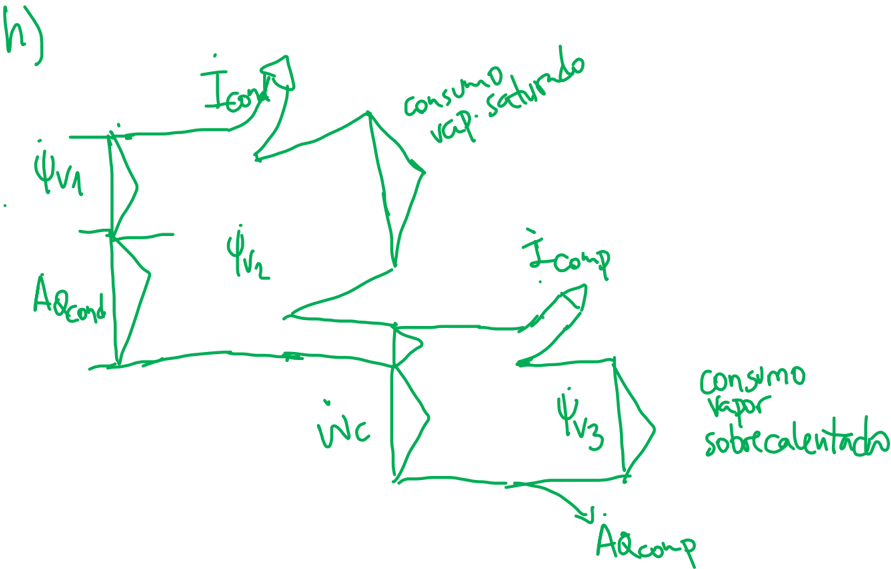 h)
İcond
consumo
vap. saturado
ψ̇v1
ψ̇v2
İcomp
ȦQcond
consumo
vapor
sobrecalentado
Ẇc
ψ̇v3
ȦQcomp